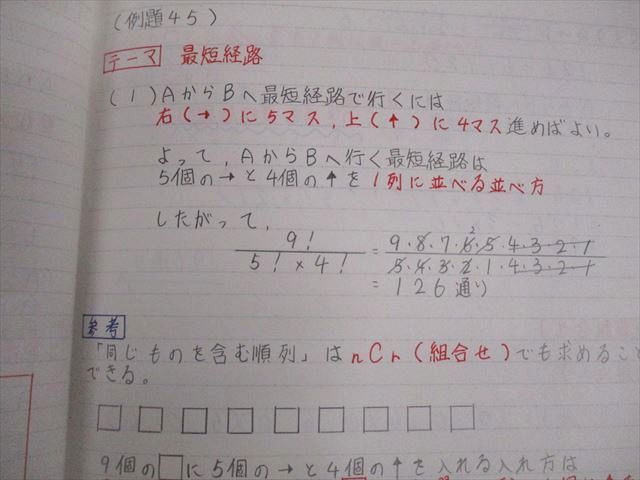 (例題45)
テーマ 最短経路
(1) AからBへ最短経路で行くには
右(→)に5マス,上(↑)に4マス進めばよい。
よって,AからBへ行く最短経路は
5個の→と4個の↑を1列に並べる並べ方
したがって,
9! / 5!×4! = 9·8·7·6·5·4·3·2·1 / 5·4·3·2·1·4·3·2·1
= 126通り
参考
「同じものを含む順列」はnCr(組合せ)でも求めること
できる。
□ □ □ □ □ □ □ □ □
9個の□に5個の→と4個の↑を入れる入れ方は